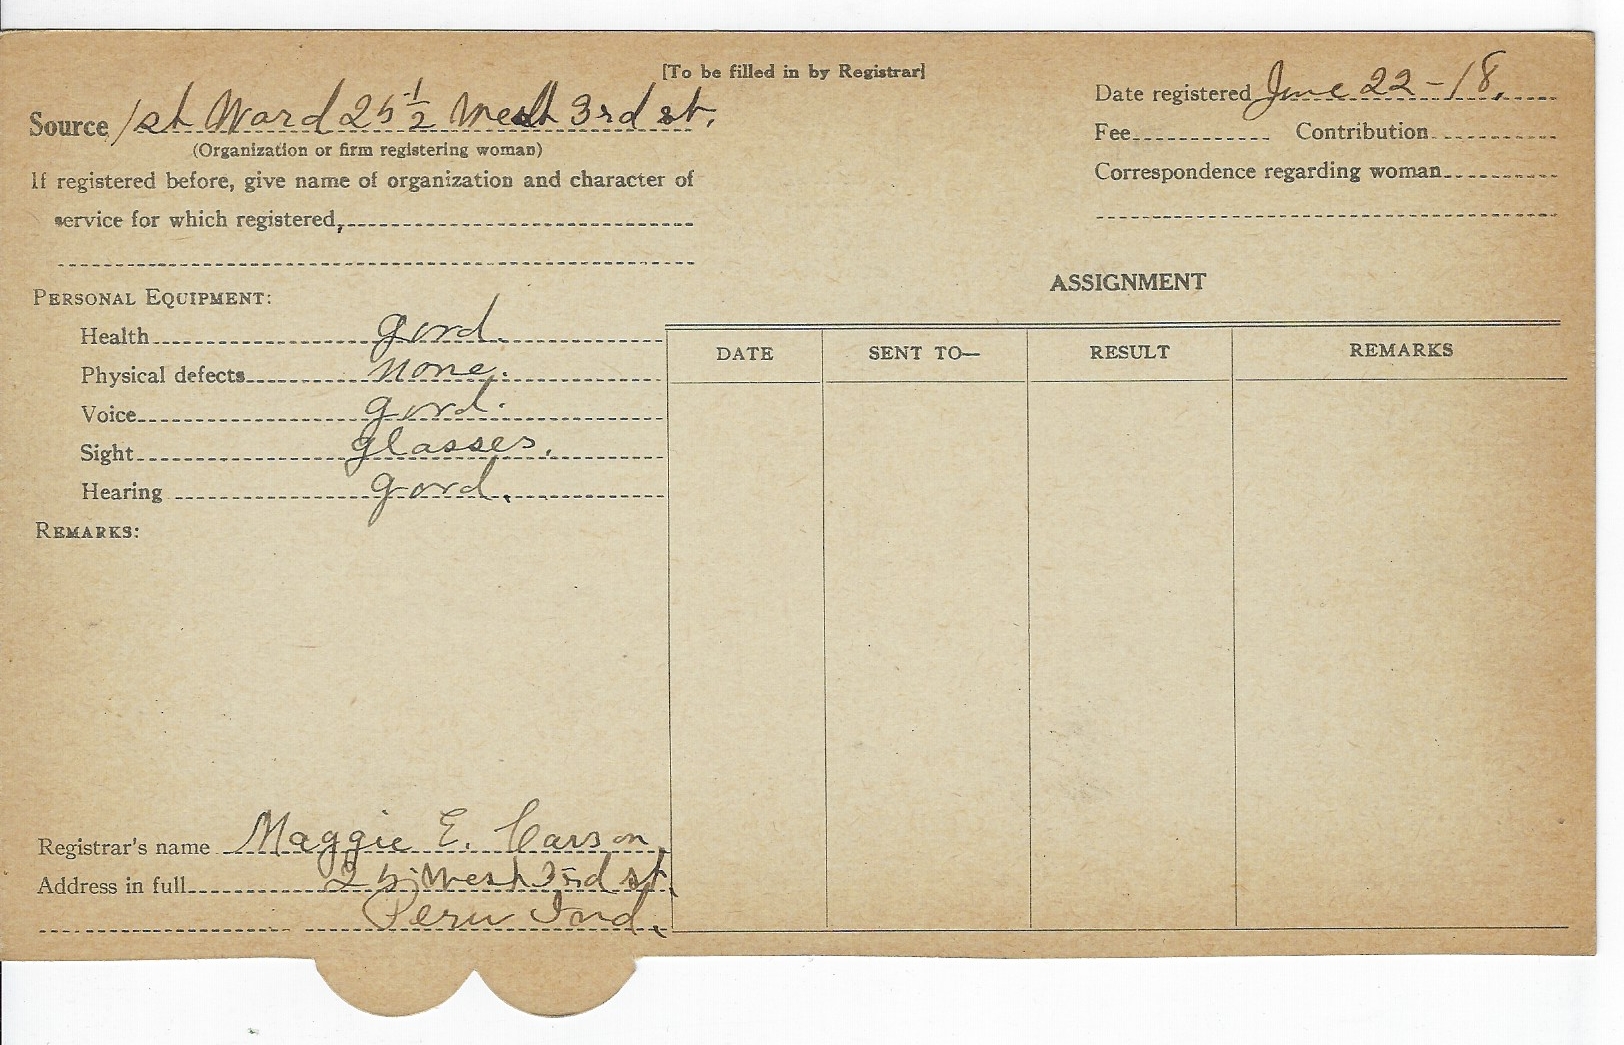 [To be filled in by Registrar]
Source 1st Ward 25 1/2 West 3rd st.
(Organization or firm registering woman)
If registered before, give name of organization and character of
service for which registered,
Date registered June 22-18.
Fee Contribution
Correspondence regarding woman
PERSONAL EQUIPMENT:
Health good.
Physical defects none.
Voice good.
Sight glasses.
Hearing good.
REMARKS:
ASSIGNMENT
DATE SENT TO— RESULT REMARKS
Registrar's name Maggie E. Carson
Address in full 25 West 3rd st.
Peru Ind.